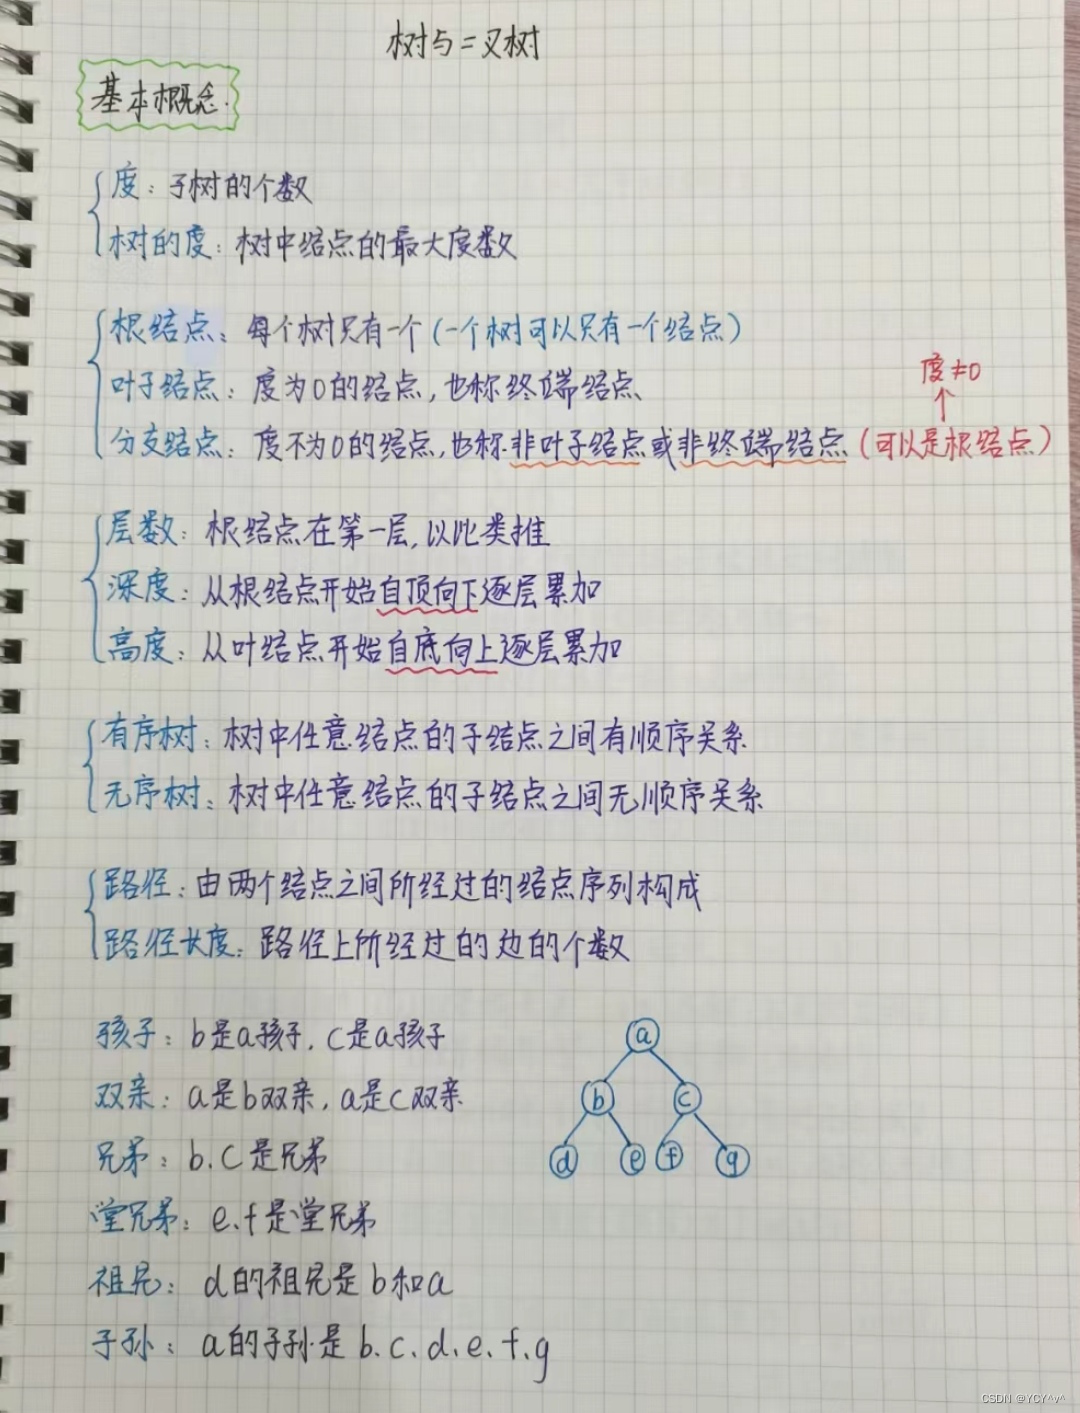 树与二叉树
基本概念.
度：子树的个数
树的度：树中结点的最大度数
根结点：每个树只有一个（一个树可以只有一个结点）
叶子结点：度为0的结点,也称终端结点
度≠0
↑
分支结点：度不为0的结点,也称非叶子结点或非终端结点（可以是根结点）
层数：根结点在第一层,以此类推
深度：从根结点开始自顶向下逐层累加
高度：从叶结点开始自底向上逐层累加
有序树：树中任意结点的子结点之间有顺序关系
无序树：树中任意结点的子结点之间无顺序关系
路径：由两个结点之间所经过的结点序列构成
路径长度：路径上所经过的边的个数
孩子：b是a孩子,c是a孩子
双亲：a是b双亲,a是c双亲
兄弟：b.c是兄弟
堂兄弟：e.f是堂兄弟
祖先：d的祖先是b和a
子孙：a的子孙是b.c.d.e.f.g
a
b c
d e f g
CSDN @YCY^v^